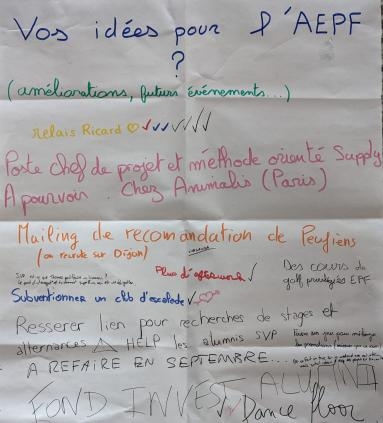 Vos idées pour l'AEPF
?
(améliorations, futurs événements...)
Relais Ricard ♡ ✓✓✓✓✓✓
Poste chef de projet et méthode orienté Supply
A pourvoir. Chez Animalis (Paris)
Mailing de recomandation de Peufiens
(on recrute sur Dijon)
Plus d'afterwork ✓
Des cours de
golf privilégiés EPF
Subventionner un club d'escalade ✓
Resserer lien pour recherches de stages et
alternances △ HELP les alumnis SVP
A REFAIRE EN SEPTEMBRE...
FOND INVEST ALUMNI
Dance floor